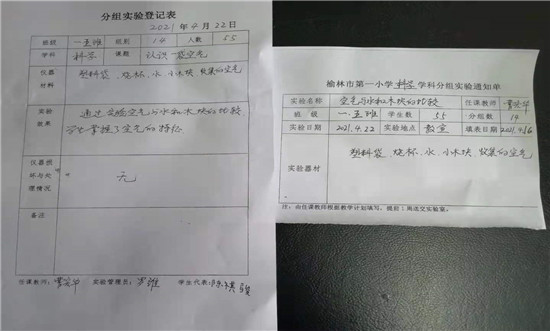 分组实验登记表
2021年4月22日
班级 一.五班 组别 14 人数 55
学科 科学 课题 认识一袋空气
仪器材料 塑料袋、烧杯、水、小木块、收集的空气
实验效果 通过实验空气与水和木块的比较
学生掌握了空气的特征
仪器损坏与处理情况 无
备注
任课教师: 实验管理员: 学生代表:
榆林市第一小学科学学科分组实验通知单
实验名称 空气与水和木块的比较 任课教师
班级 一.五班 学生数 55 分组数 14
实验日期 2021.4.22 实验地点 教室 填表日期 2021.4.16
实验器材 塑料袋、烧杯、水、小木块、收集的空气
注:由任课教师根据教学计划填写,提前1周送交实验室。